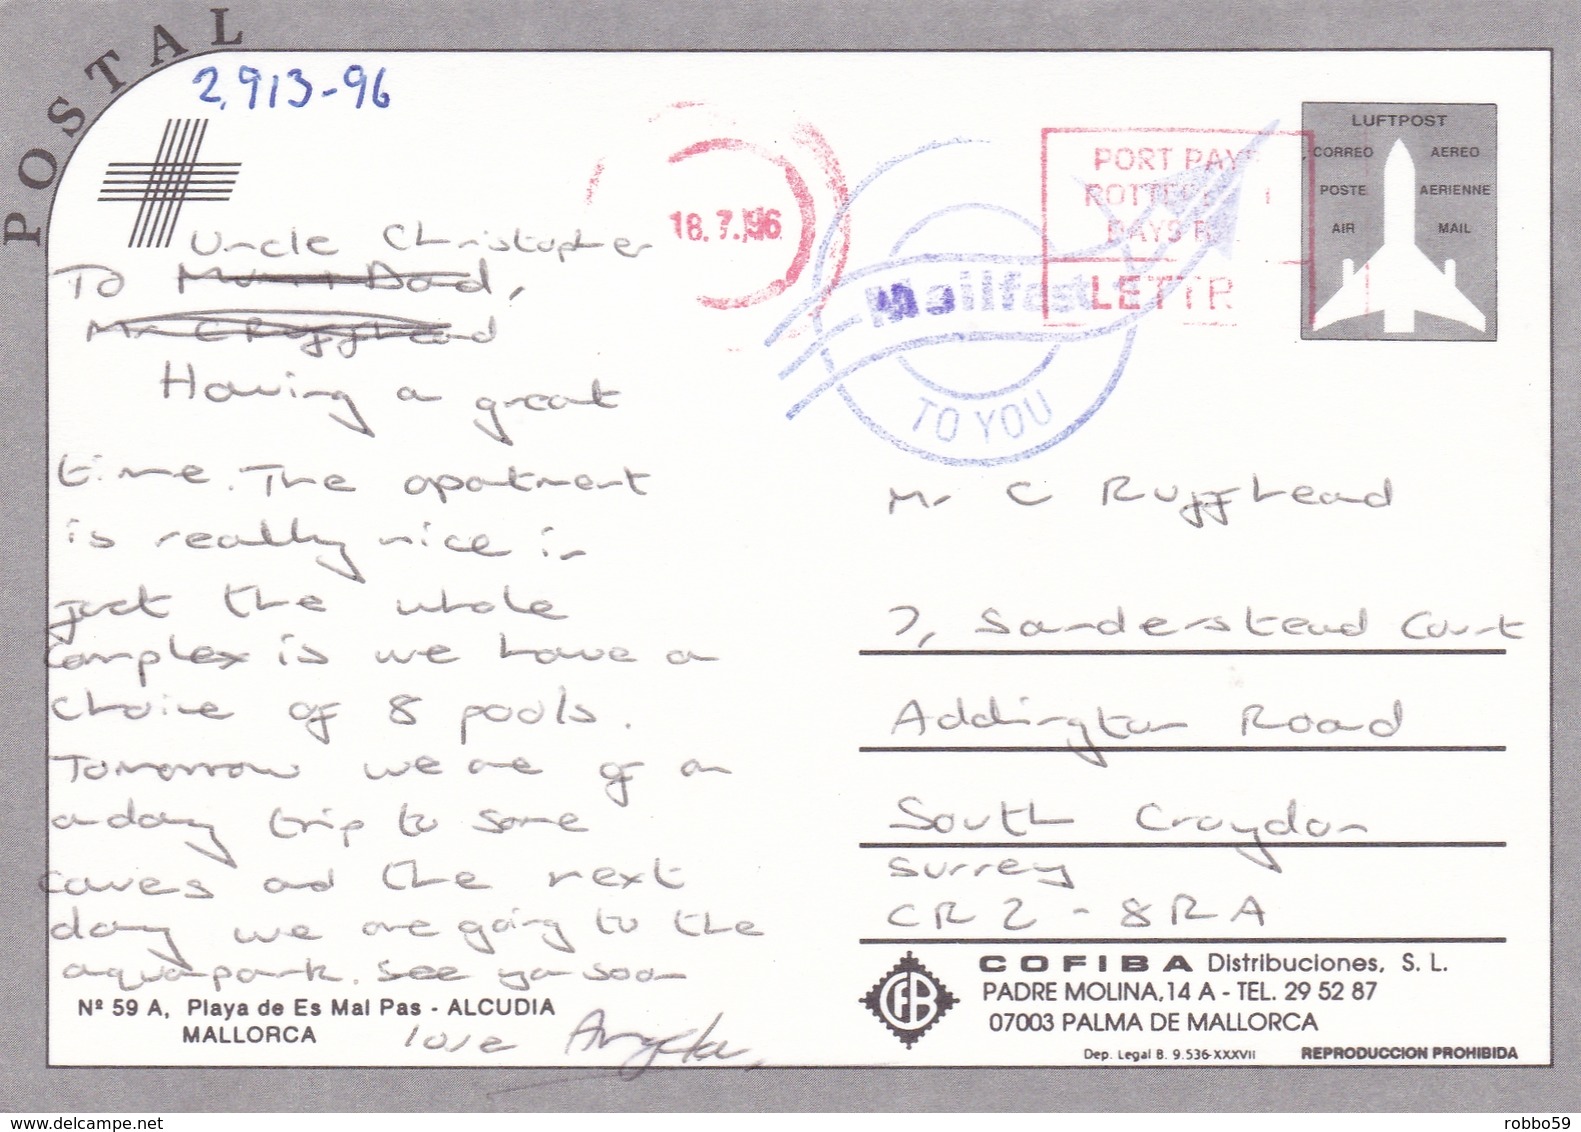 POSTAL
2,913-96
Uncle Christopher
To Mum + Dad,
Mr C Ruffhead
Having a great
time. The apartment
is really nice in
fact the whole
complex is we have a
choice of 8 pools.
Tomorrow we are of on
a day trip to some
caves and the next
day we are going to the
aquapark. See ya soon
love Angela
Nº 59 A, Playa de Es Mal Pas - ALCUDIA
MALLORCA
18.7.96
PORT PAY
PAYS
LETTR
Mailfast
TO YOU
LUFTPOST
CORREO AEREO
POSTE AERIENNE
AIR MAIL
Mr C Ruffhead
7, Sanderstead Court
Addington Road
South Croydon
Surrey
CR2 - 8RA
CFB
COFIBA Distribuciones, S. L.
PADRE MOLINA, 14 A - TEL. 29 52 87
07003 PALMA DE MALLORCA
Dep. Legal B. 9.536-XXXVII REPRODUCCION PROHIBIDA
www.delcampe.net
robbo59